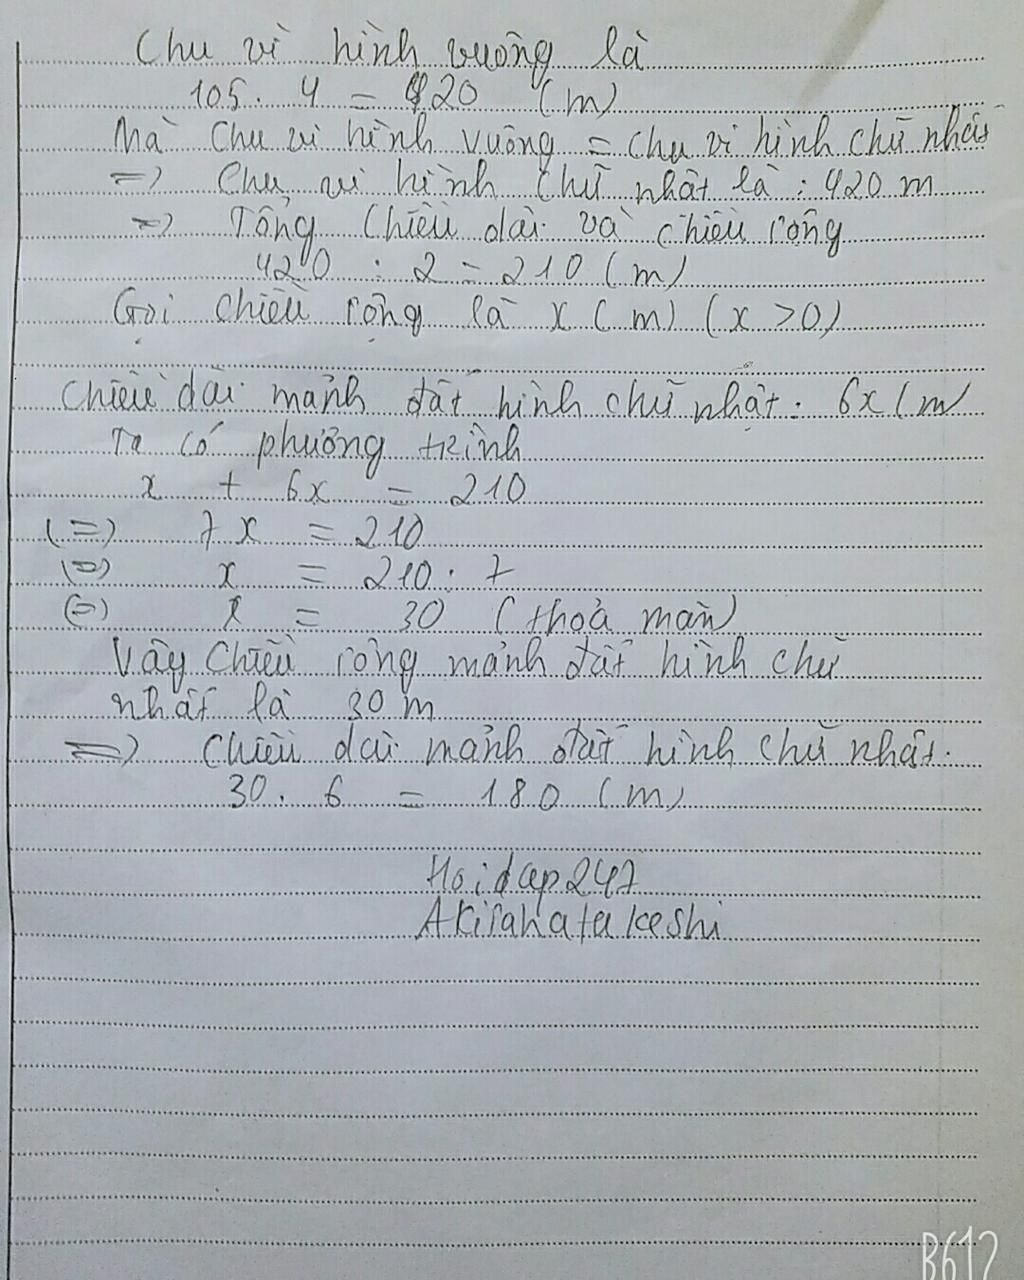 Chu vi hình vuông là
105 . 4 = 420 (m)
Mà chu vi hình vuông = chu vi hình chữ nhật
=> Chu vi hình chữ nhật là : 420 m
=> Tổng chiều dài và chiều rộng
420 : 2 = 210 (m)
Gọi chiều rộng là x (m) (x > 0)
Chiều dài mảnh đất hình chữ nhật : 6x (m
Ta có phương trình
x + 6x = 210
(=) 7x = 210
(=) x = 210 : 7
(=) x = 30 (thoả mãn)
Vậy chiều rộng mảnh đất hình chữ
nhất là 30 m
=> Chiều dài mảnh đất hình chữ nhật.
30 . 6 = 180 (m)
Hoidap247
Akirahatakeshi
B612